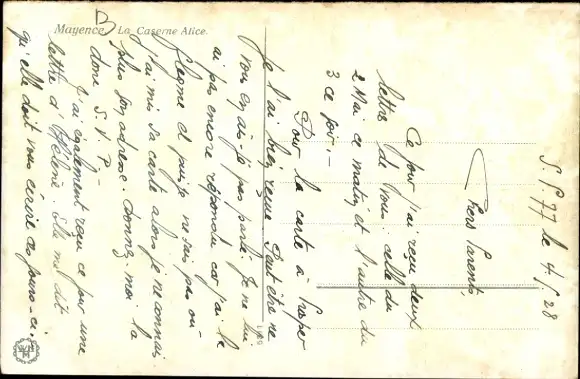 Mayence. La Caserne Alice.
B
S. P. 77 le 4/5/28
Chers Parents,
Ce jour j'ai reçu deux
lettres de vous : celle du
2 Mai ce matin et l'autre du
3 ce soir :-
Pour la carte à Prosper
je l'ai bien reçue. Peut être ne
vous en ai-je pas parlé. Je ne lui
ai pas encore répondu car j'ai la
flemme et puis je ne sais pas où
j'ai mis sa carte alors je ne connais
plus son adresse. Donnez-moi la
donc S. V. P. -
J'ai également reçu ce jour une
lettre d'Hélène. Elle me dit
qu'elle doit vous écrire ces jours-ci.